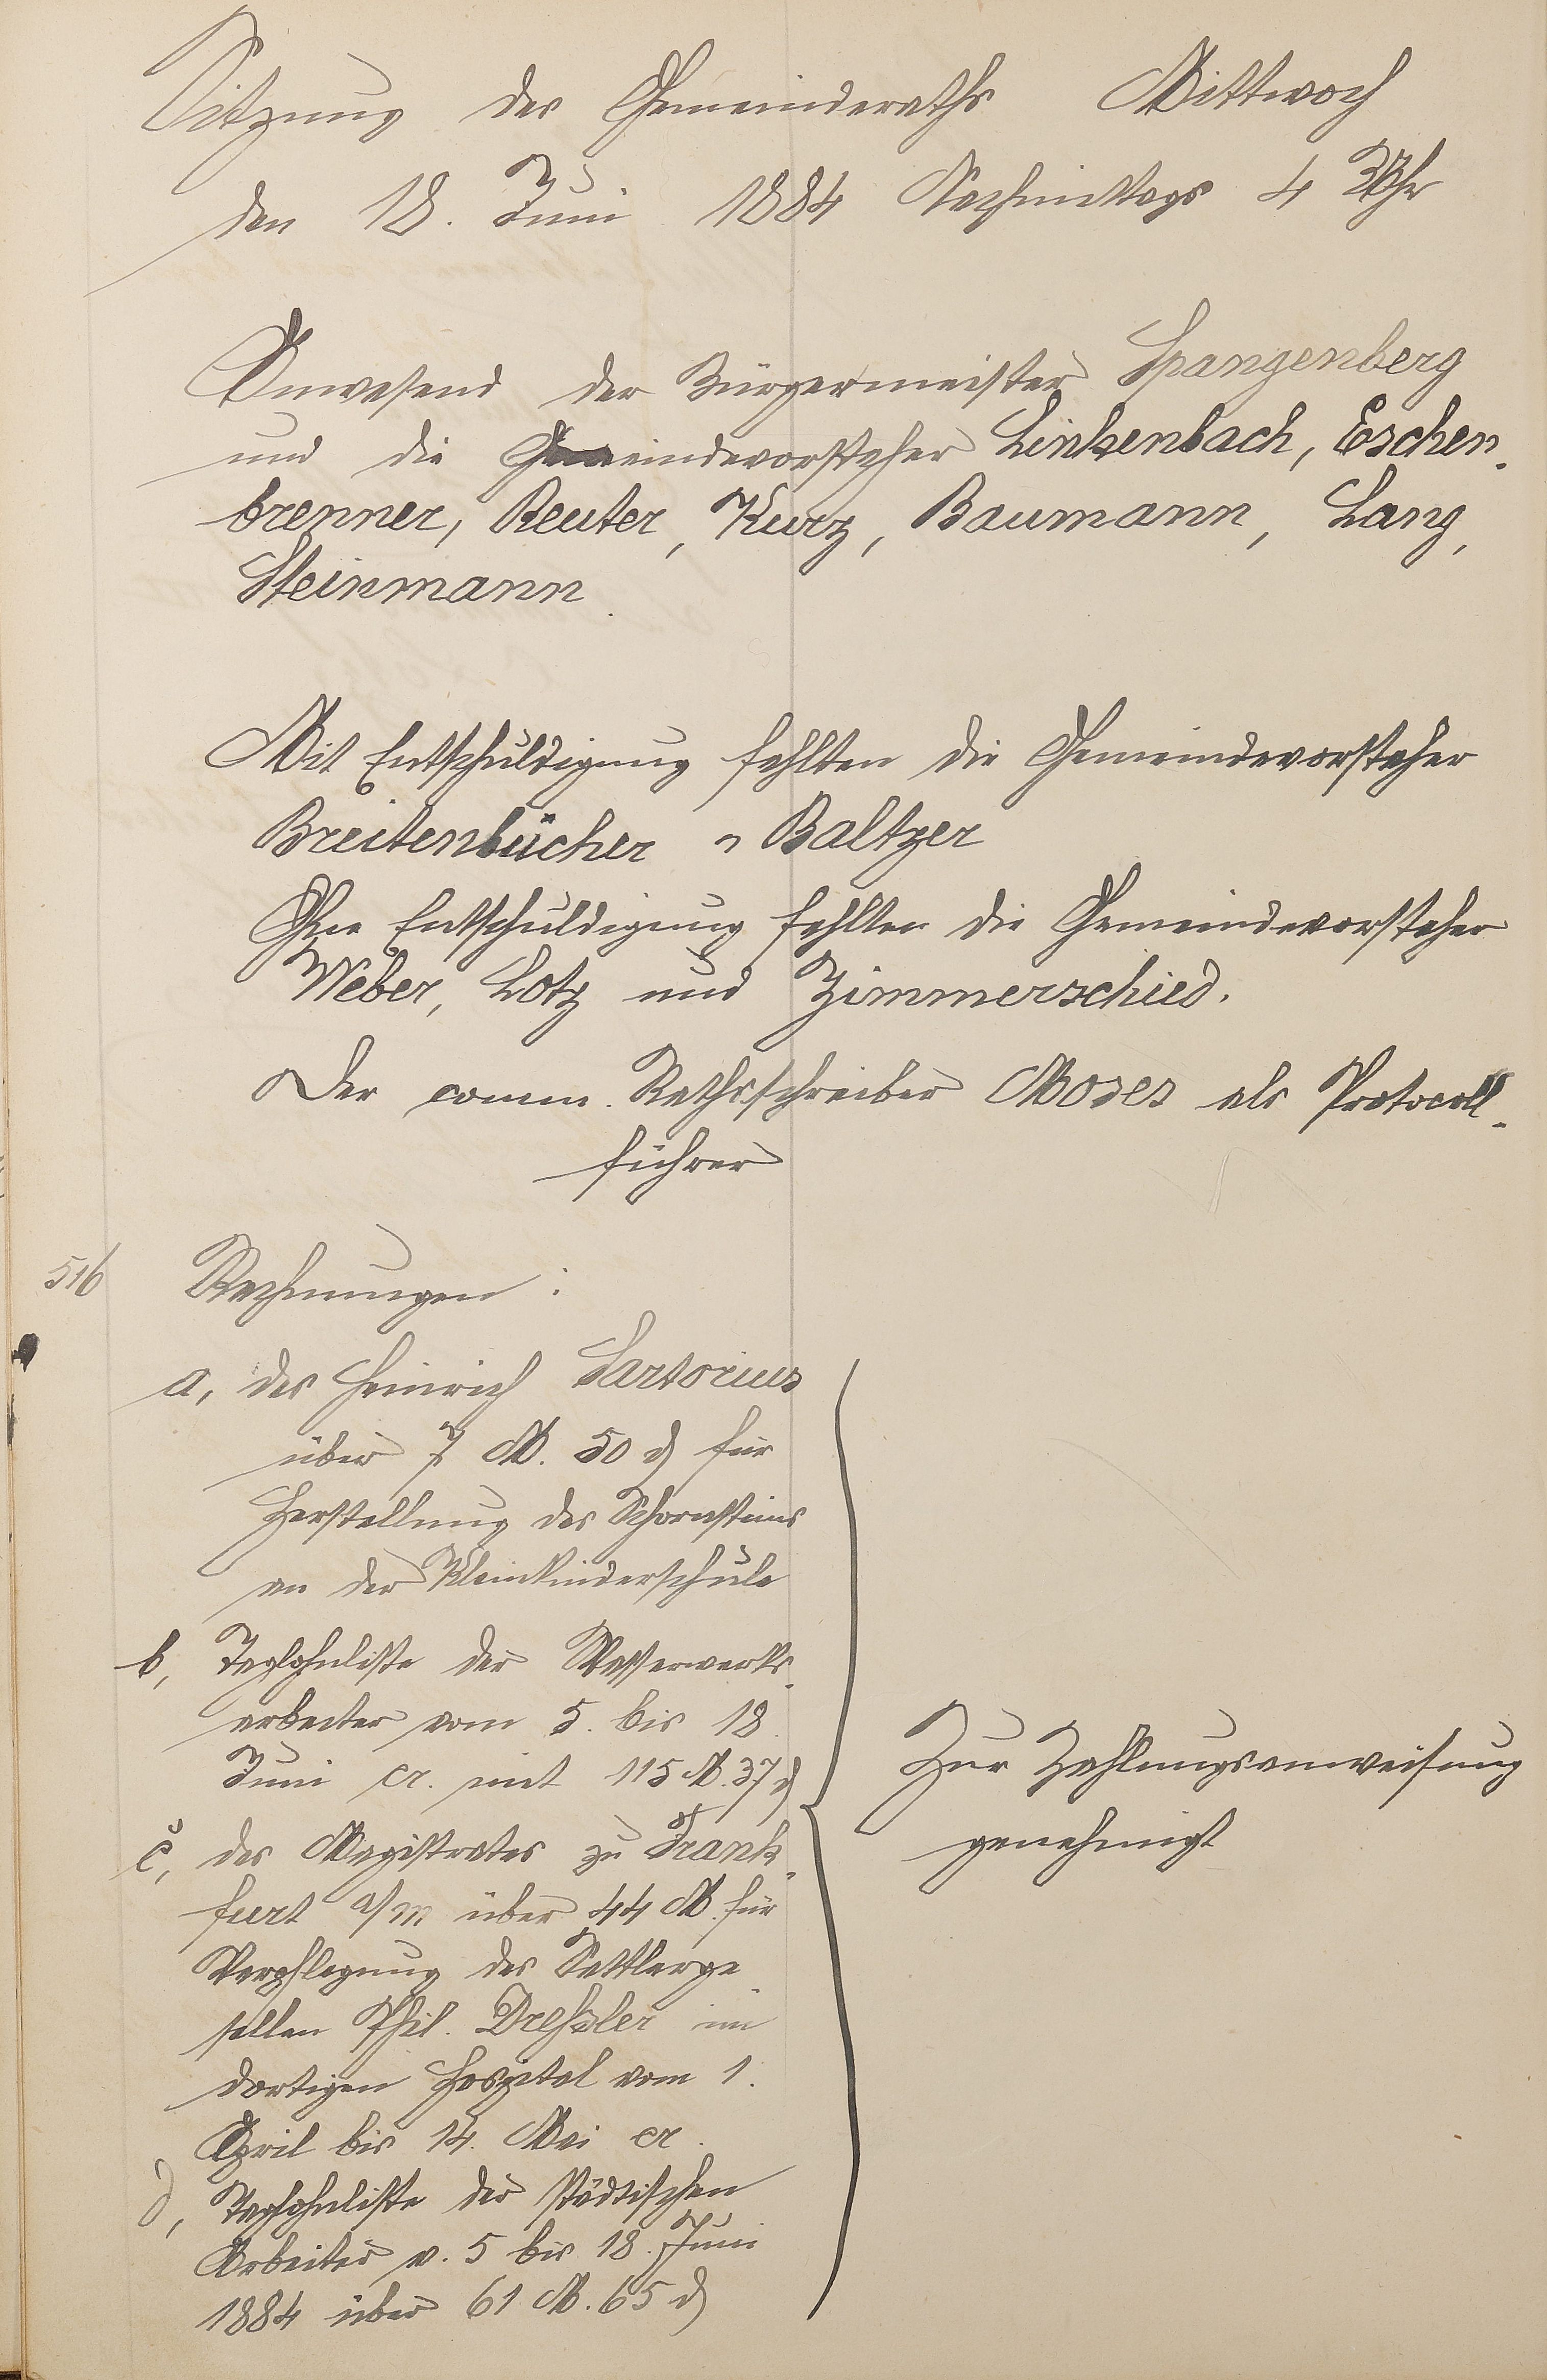 Sitzung des Gemeinderaths Mittwoch
den 18. Juni 1884 Nachmittags 4 Uhr
Anwesend der Bürgermeister Spangenberg
und die Gemeindevorsteher Linkenbach, Eschen-
brenner, Reuter, Kurz, Baumann, Lang,
Steinmann.
Mit Entschuldigung fehlten die Gemeindevorsteher
Breitenbücher u Baltzer
Ohne Entschuldigung fehlten die Gemeindevorsteher
Weber, Lotz und Zimmerschied.
Der comm. Rathsschreiber Moses als Protocoll-
führer
516 Rechnungen:
a, des Heinrich Sartorius
über 7 M. 50 ₰ für
Herstellung des Schornsteins
an der Kleinkinderschule
b, Taglohnliste der Wasserwerks-
arbeiter vom 5. bis 18.
Juni cr. mit 115 M. 37 ₰
c, des Magistrates zu Frank-
furt a/M über 44 M. für
Verpflegung des Sattlerge-
sellen Phil. Dreßler im
dortigen Hospital vom 1.
April bis 14. Mai cr.
d, Taglohnliste der städtischen
Arbeiter v. 5 bis 18. Juni
1884 über 61 M. 65 ₰
Zur Zahlungsanweisung
genehmigt